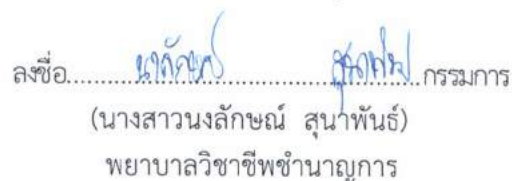 ลงชื่อ........................................................กรรมการ
(นางสาวนงลักษณ์ สุนาพันธ์)
พยาบาลวิชาชีพชำนาญการ